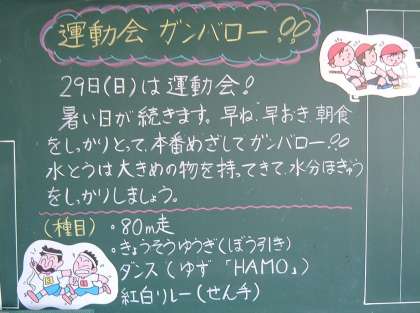 運動会 ガンバロー!!
29日(日)は運動会!
暑い日が続きます。早ね、早おき、朝食
をしっかりとって、本番めざしてガンバロー!!
水とうは大きめの物を持ってきて、水分ほきゅう
をしっかりしましょう。
(種目)・80m走
・きょうそうゆうぎ(ぼう引き)
ダンス(ゆず「HAMO」)
紅白リレー(せん手)